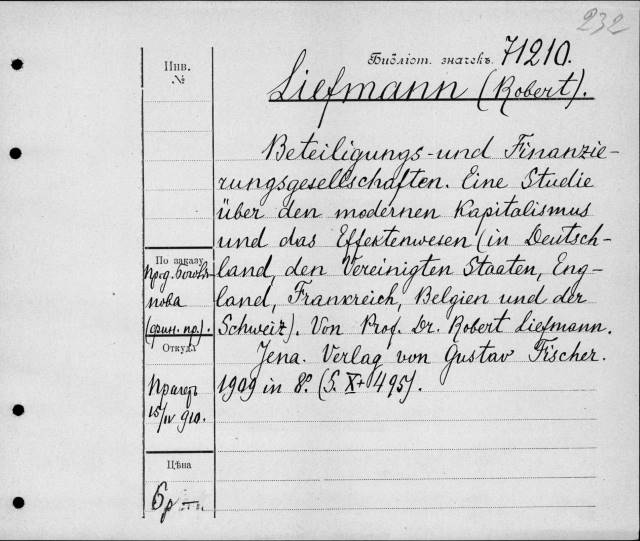 232
Библіот. значекъ 71210.
Инв.
№
Liefmann (Robert).
Beteiligungs- und Finanzie-
rungsgesellschaften. Eine Studie
über den modernen Kapitalismus
und das Effektenwesen (in Deutsch-
land, den Vereinigten Staaten, Eng-
land, Frankreich, Belgien und der
Schweiz). Von Prof. Dr. Robert Liefmann.
Jena. Verlag von Gustav Fischer.
1909 in 8º. (S. X + 495).
По заказу
прод.
нова
(фин. пр.).
Откуда
Прагеръ
15/IV 910.
Цѣна
6 р —